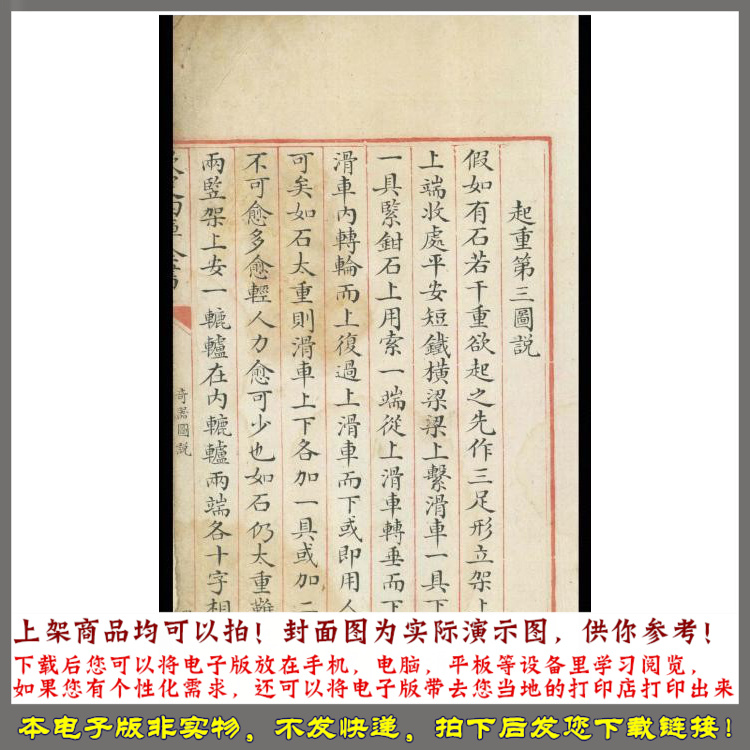 起重第三圖說
假如有石若干重欲起之先作三足形立架上
上端收處平安短鐵橫梁梁上繫滑車一具下
一具緊鉗石上用索一端從上滑車轉垂而下
滑車內轉輪而上復過上滑車而下或即用人
可矣如石太重則滑車上下各加一具或加二
不可愈多愈輕人力愈可少也如石仍太重難
兩竪架上安一轆轤在內轆轤兩端各十字相
奇器圖説
上架商品均可以拍！封面图为实际演示图，供你参考！
下载后您可以将电子版放在手机，电脑，平板等设备里学习阅览，
如果您有个性化需求，还可以将电子版带去您当地的打印店打印出来
本电子版非实物，不发快递，拍下后发您下载链接！